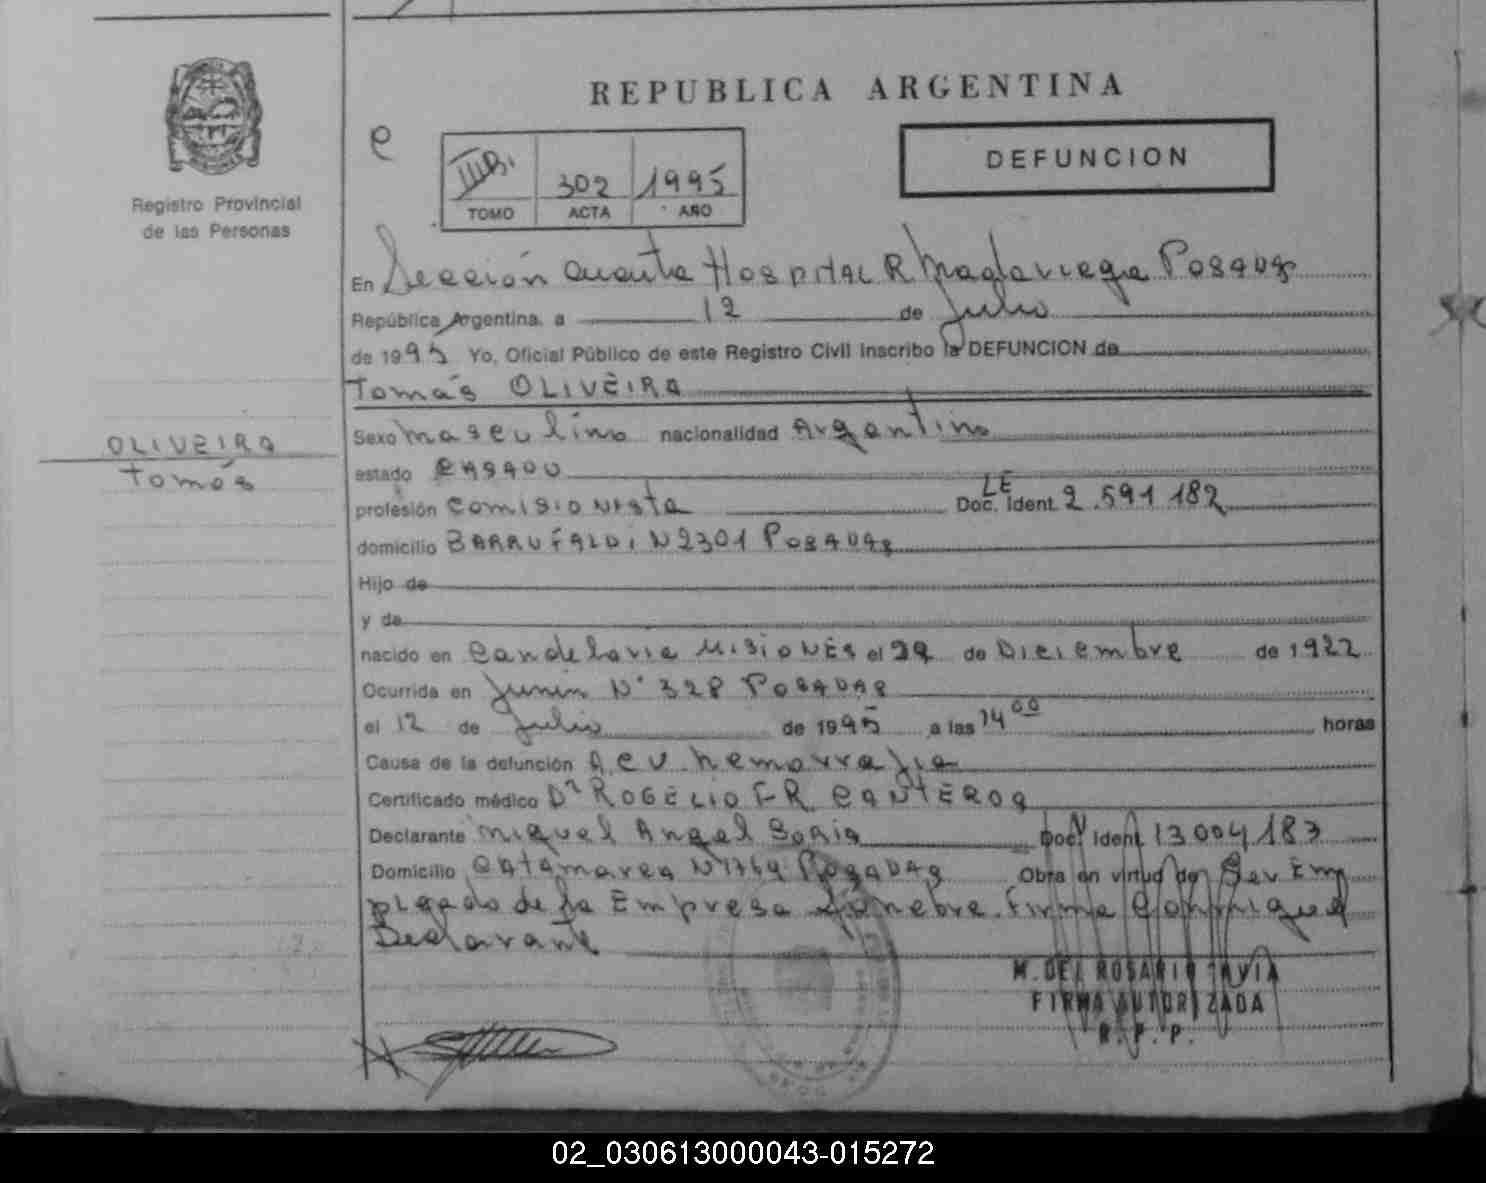 REPUBLICA ARGENTINA
Registro Provincial
de las Personas
e
302 1995
TOMO ACTA AÑO
DEFUNCION
En Sección Cuarta Hospital R Madariaga Posadas
República Argentina, a 12 de Julio
de 1995 Yo, Oficial Público de este Registro Civil Inscribo la DEFUNCION de
Tomás OLIVEIRA
OLIVEIRA
Tomás
Sexo masculino nacionalidad Argentino
estado CASADO
profesión comisionista Doc. Ident. LE 2.591.182
domicilio BARRUFALDI N 2301 POSADAS
Hijo de
y de
nacido en Candelaria MISIONES el 29 de Diciembre de 1922
Ocurrida en Junín N° 328 POSADAS
el 12 de Julio de 1995 a las 14 00 horas
Causa de la defunción Acv. hemorragia
Certificado médico Dr ROGELIO FR. CANTEROS
Declarante Miguel Angel Soria Doc. Ident. 13.004.183
Domicilio Catamarca N 1764 POSADAS Obra en virtud de Ser Em
pleado de la Empresa Fúnebre. Firma Conmigo el
Declarante
M. DEL ROSARIO TAVIA
FIRMA AUTORIZADA
R. P. P.
02_030613000043-015272